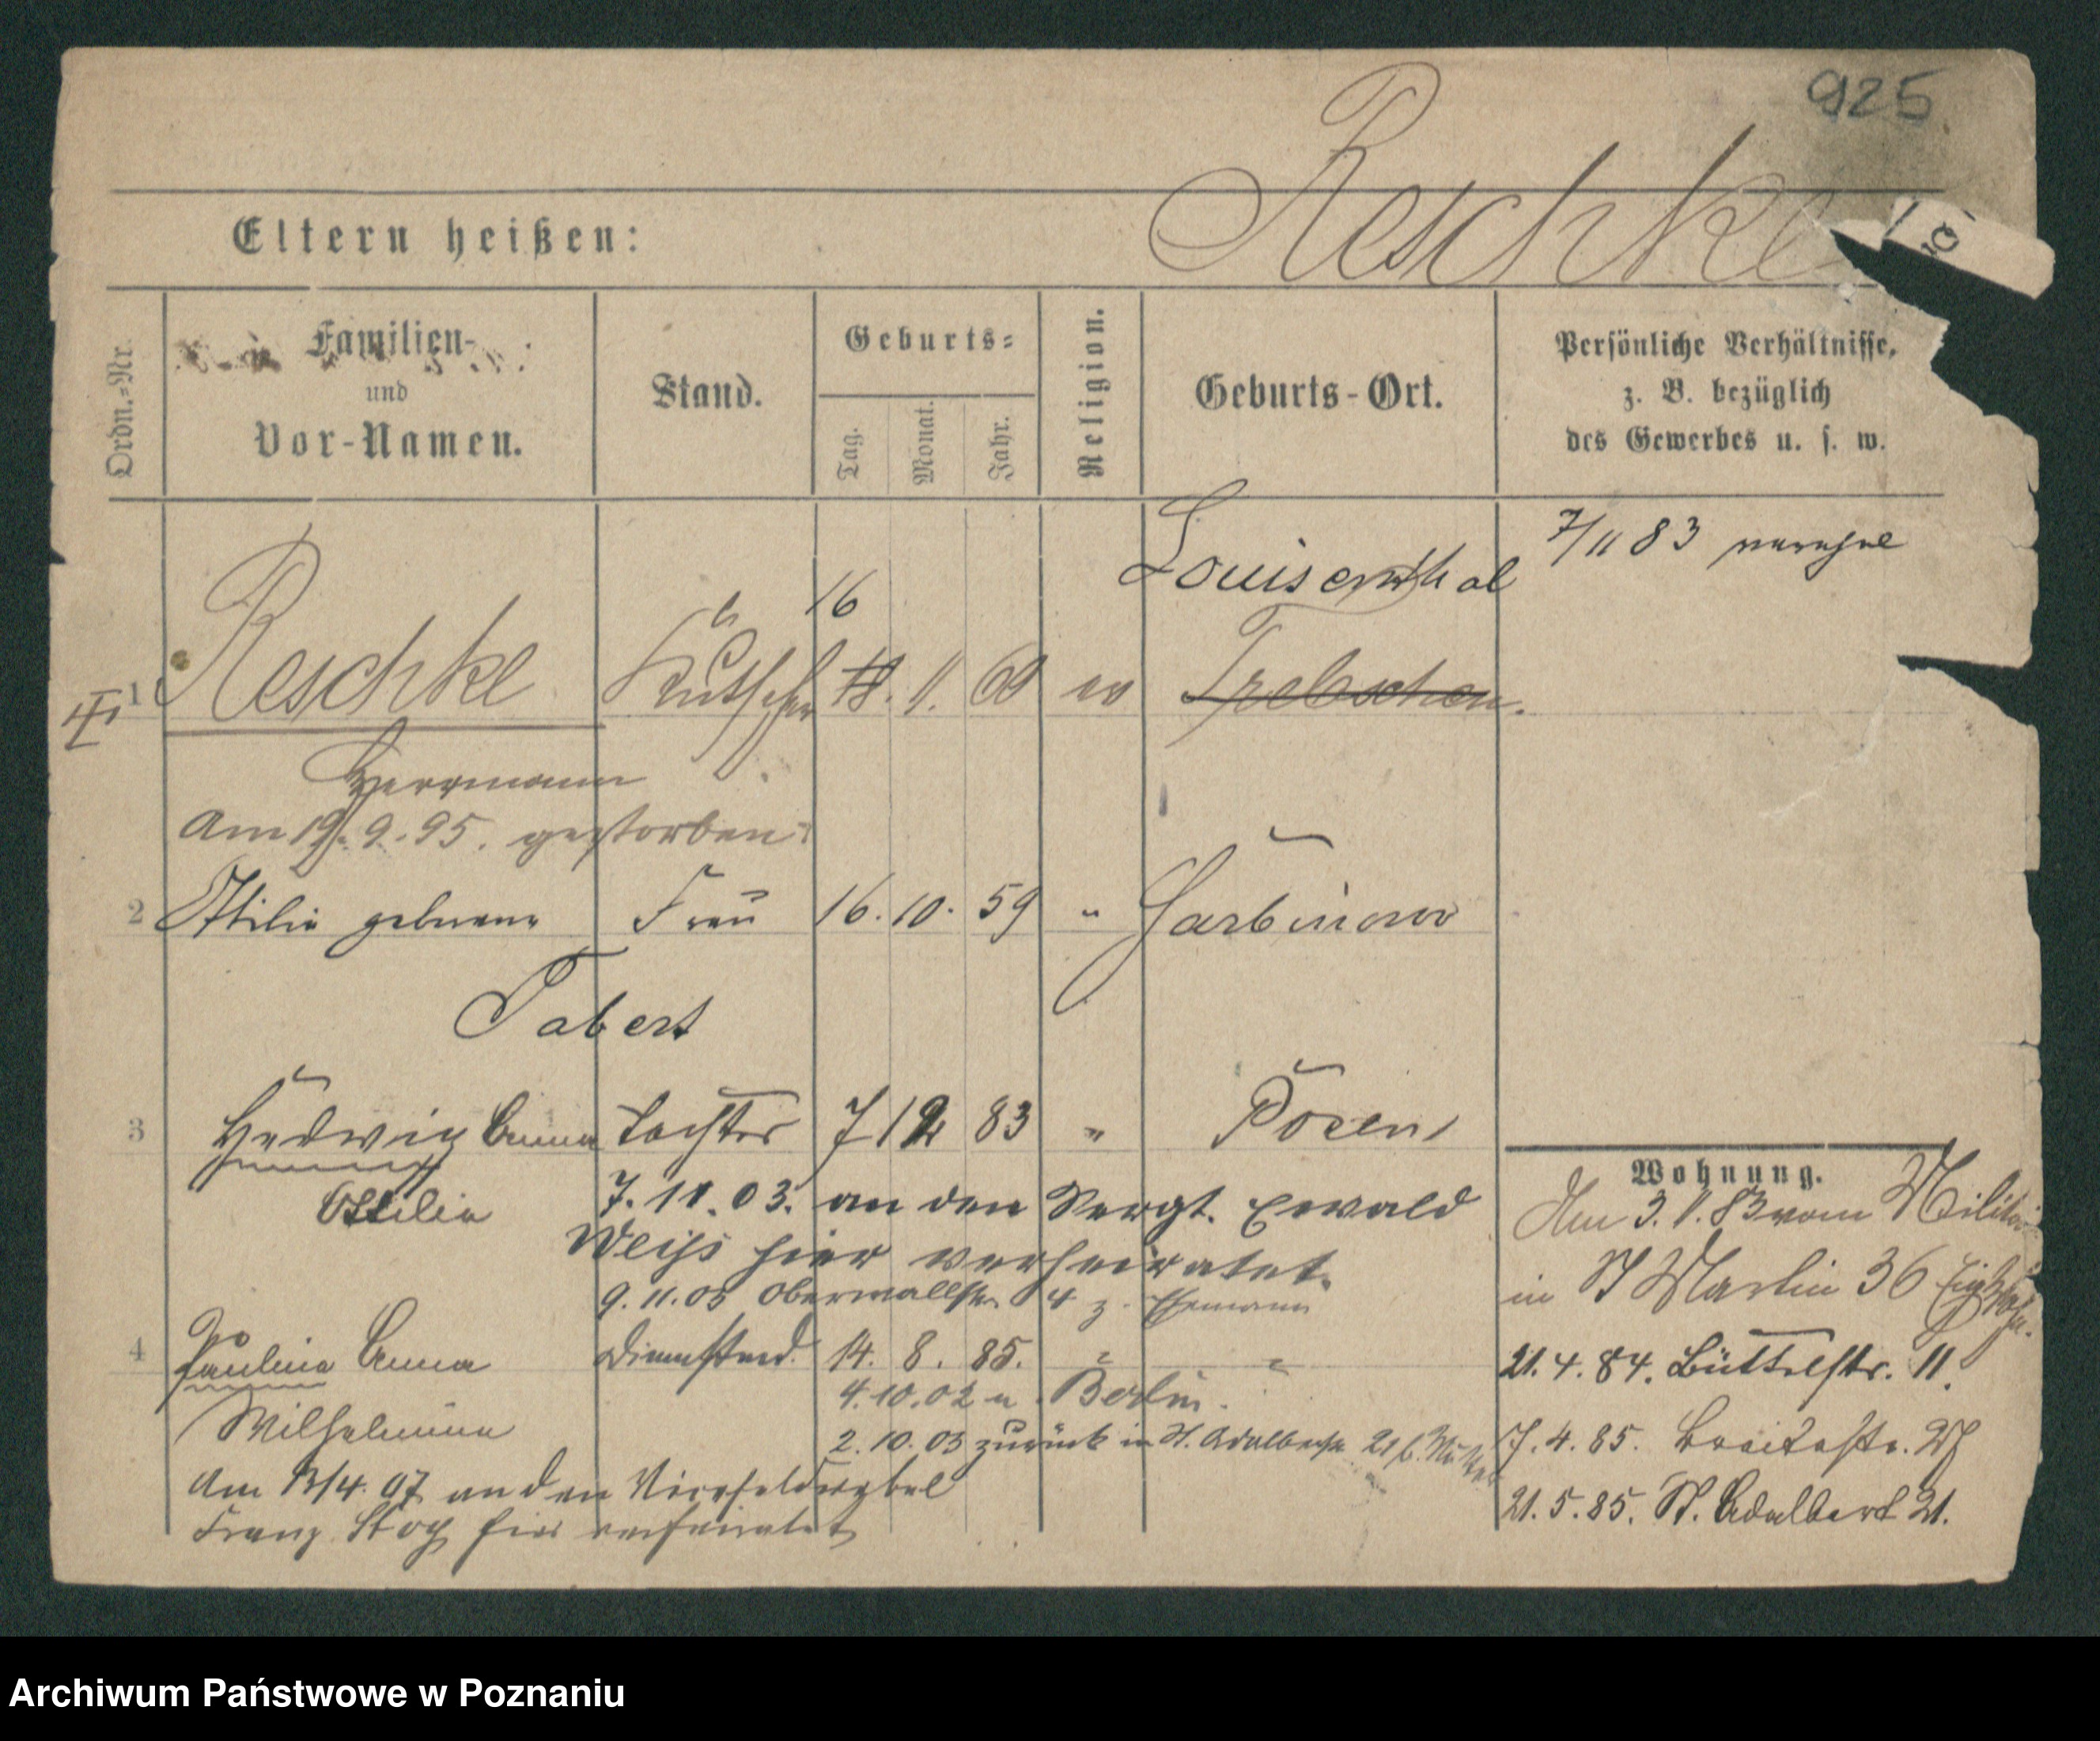 925
Reschke
Eltern heißen:
Ordn.-Nr.
Familien-
und
Vor-Namen.
Stand.
Geburts-
Tag.
Monat.
Jahr.
Religion.
Geburts-Ort.
Persönliche Verhältnisse,
z. B. bezüglich
des Gewerbes u. s. w.
Louisenthal
7/11 83
16
1 Reschke Kutscher 18. 11. 60 ev Trebschen.
Herrmann
Am 19. 9. 95. gestorben.
2 Ottilie geborene Frau 16. 10. 59 " Garbinowo
Tabert
3 Hedwig Anna Tochter 7 12 83 " Posen
Ottilie
7. 11. 03. an den Sergt. Ewald
Weiss hier verheiratet.
9. 11. 03 Oberwallstr. 4 z. Ehemann
4 Pauline Anna Dienstmd. 14. 8. 85. " "
Wilhelmine
4. 10. 02 n. Berlin.
2. 10. 03 zurück in St. Adalbertstr. 21 b. Mutter
Am 13/4. 07 an den Vicefeldwebel
Franz hier verheiratet
Wohnung.
Am 3. 11. 83 vom Militär
in St Martin 36
21. 4. 84. Büttelstr. 11.
7. 4. 85. Breitestr. 27
21. 5. 85. St. Adalbert 21.
Archiwum Państwowe w Poznaniu